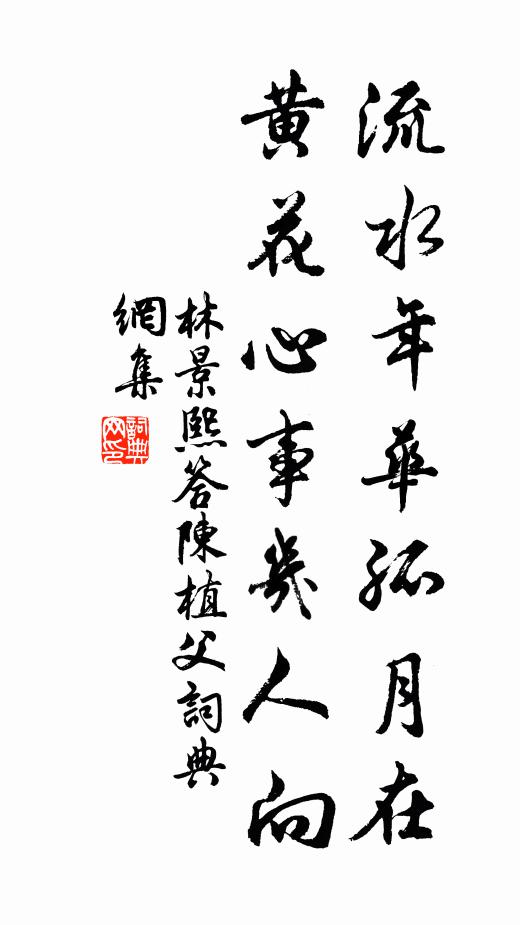 流水年華孤月在
黃花心事幾人向
林景熙答陳植父詞典
網集
詞典
网印